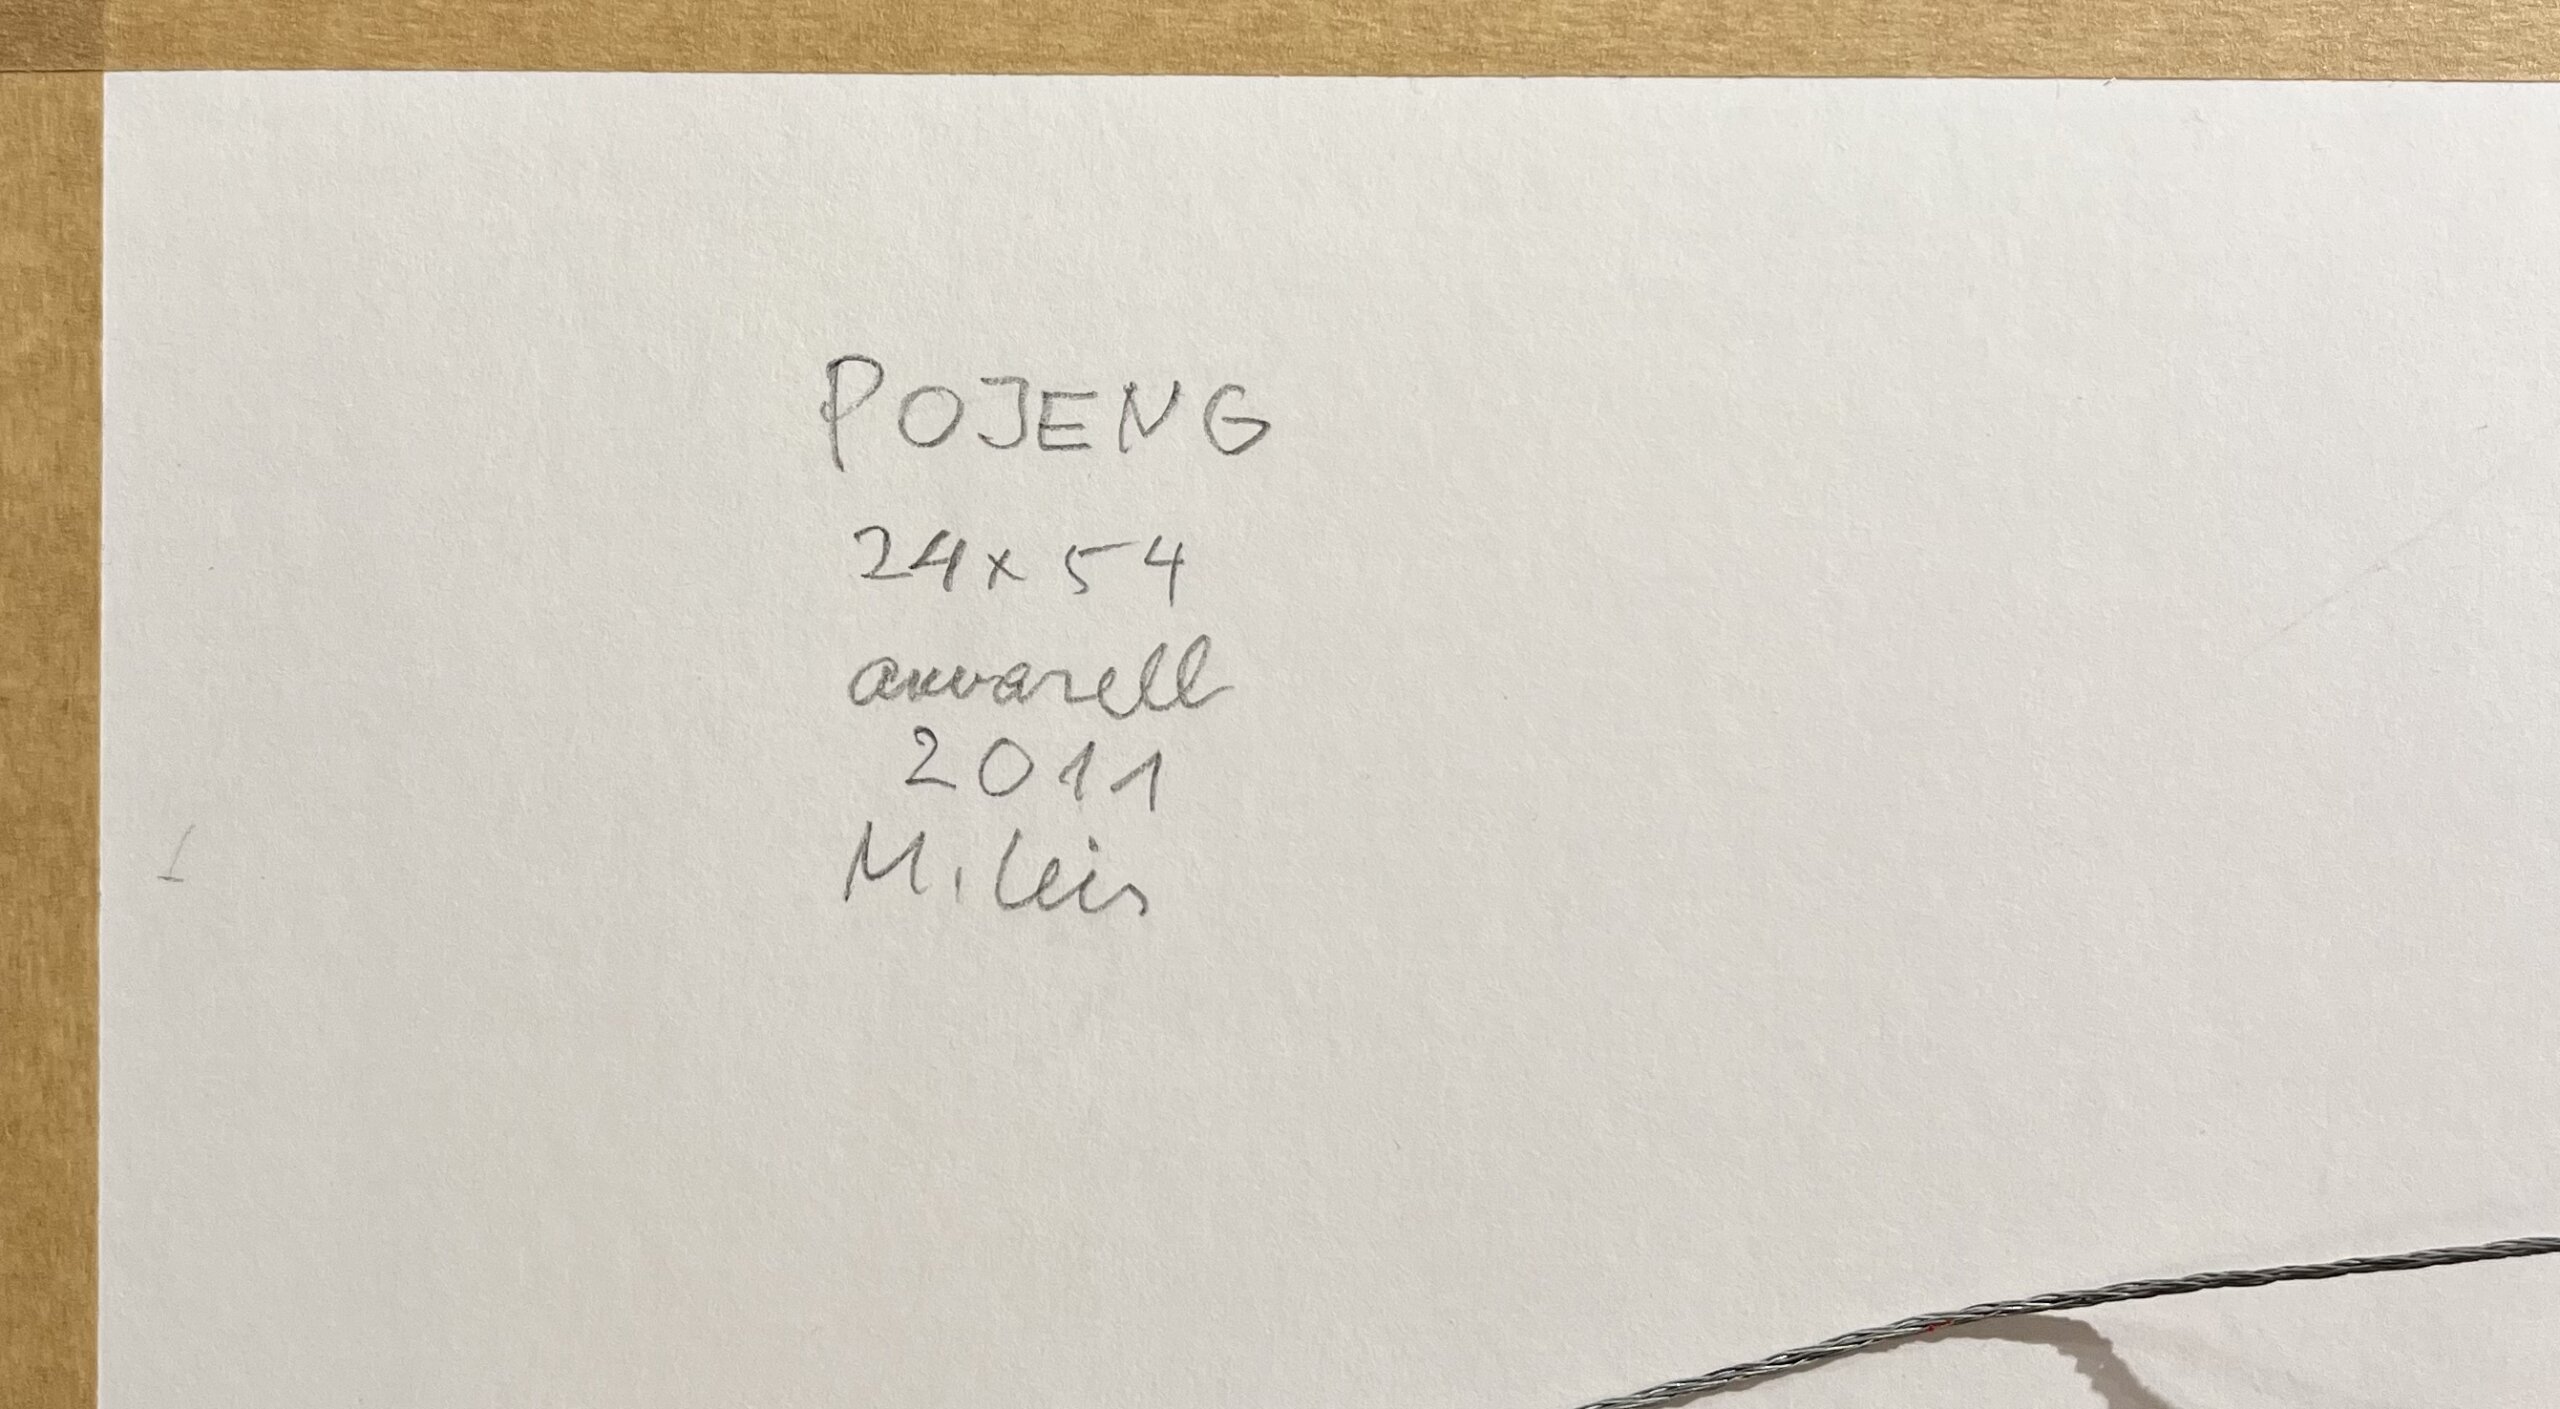 POJENG
24x54
akvarell
2011
M. Leis